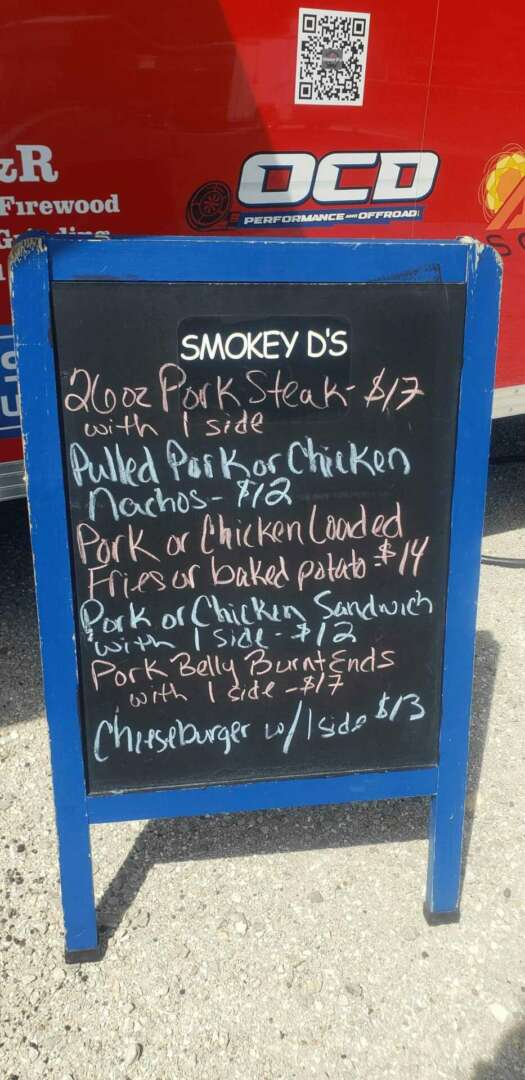 &R
Firewood
OCD
PERFORMANCE AND OFFROAD
SMOKEY D'S
26oz Pork Steak - $17
with 1 side
Pulled Pork or Chicken
Nachos - $12
Pork or Chicken Loaded
Fries or baked potato - $14
Pork or Chicken Sandwich
with 1 side - $12
Pork Belly Burnt Ends
with 1 side - $17
Cheeseburger w/ 1 side $13